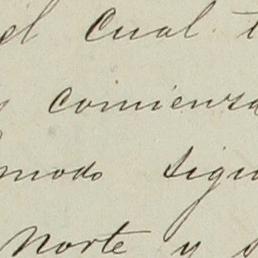 el cual
comienza
modo sigu
Norte y